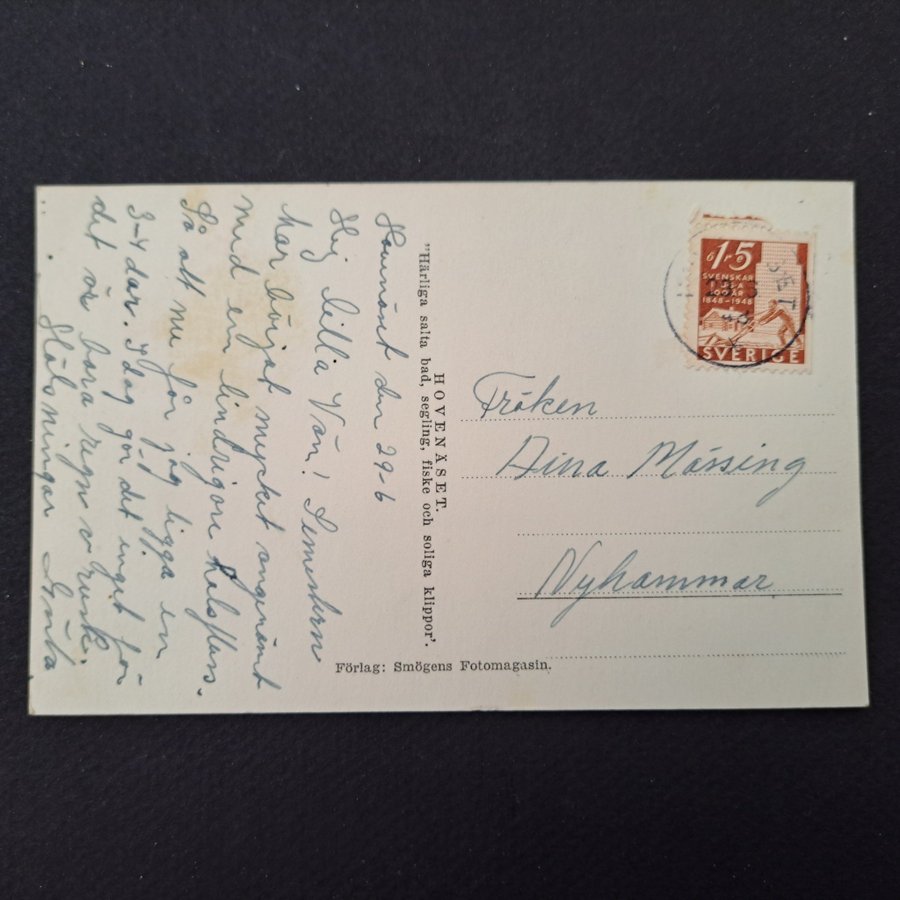 Hovenäset den 29-6
Hej lilla Vän! Semestern
har börjat mycket angenämt
med en lindrigare halsfluss.
Så att nu får jag ligga en
3-4 dar. I dag gör det inget för
det är bara regn o rusk.
Hälsningar
"Härliga salta bad, segling, fiske och soliga klippor'.
HOVENÄSET.
Förlag: Smögens Fotomagasin.
6 15
SVENSKAR
I USA
100 ÅR
1848-1948
SVERIGE
Fröken
Dina Mässing
Nyhammar